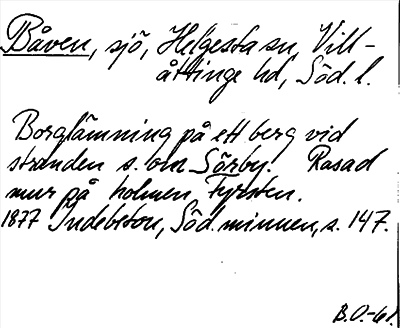 Båven, sjö, Helgesta sn, Vill-
åttinge hd, Söd. l.
Borglämning på ett berg vid
stranden s. om Sörby. Rasad
mur på holmen Fyrsten.
1877 Indebetou, Söd. minnen, s. 147.
B.O.-61.